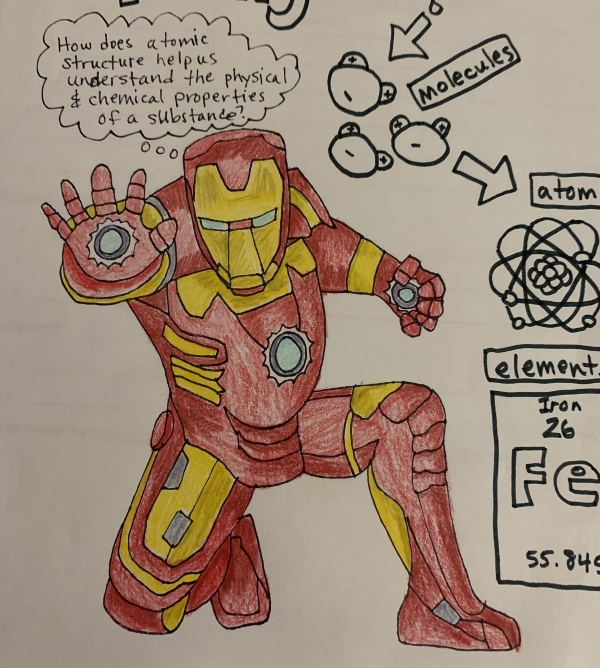 How does atomic
structure help us
understand the physical
& chemical properties
of a substance?
+
+
-
+
+
-
+
+
-
molecules
atom
element
Iron
26
Fe
55.845